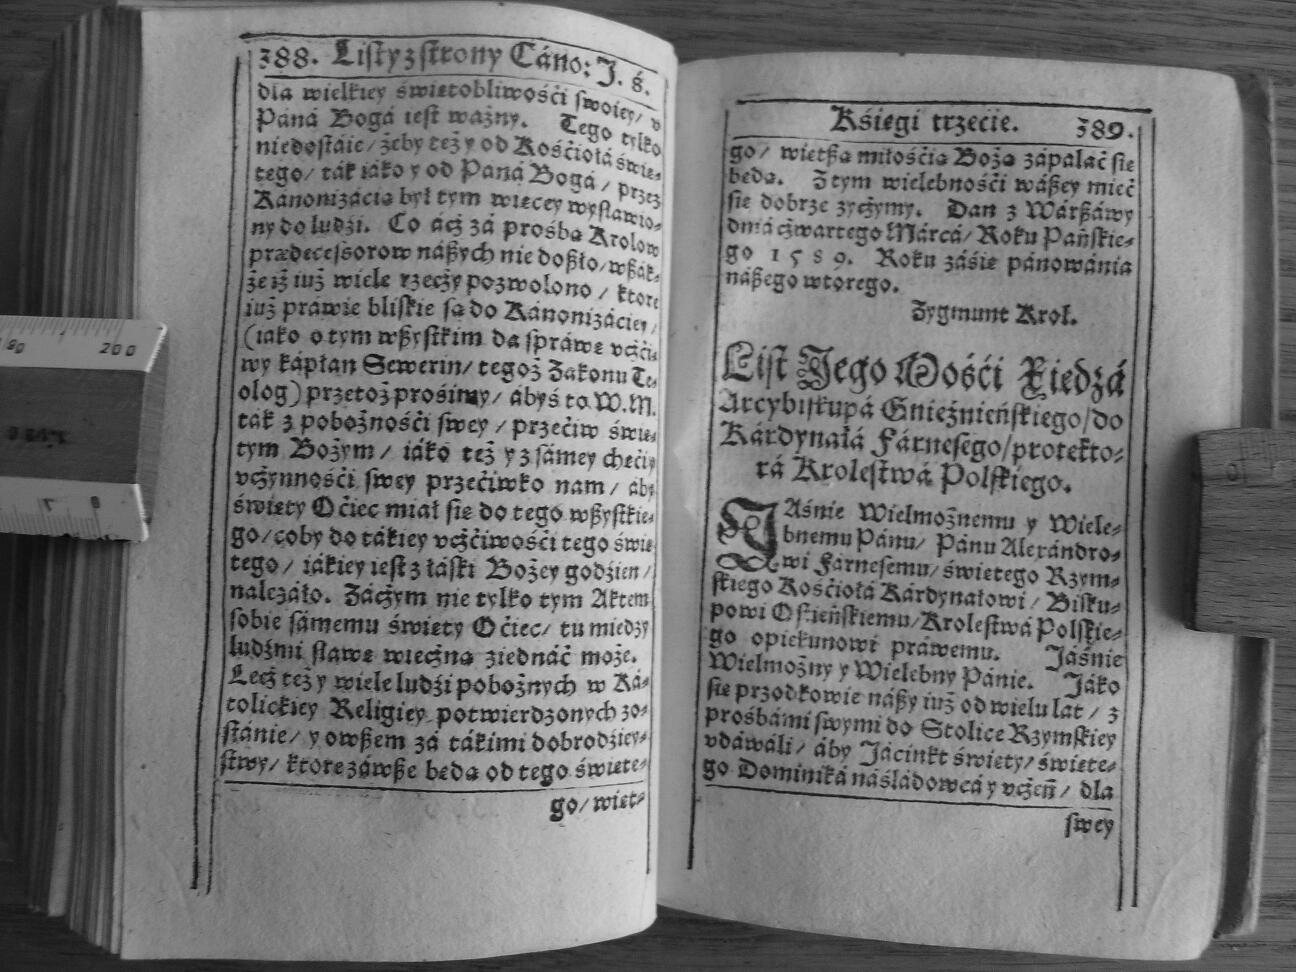 388. Listy z strony Cáno: J. ś.
dla wielkiey świętobliwośći swoiey/ v
Páná Bogá iest ważny. Tego tylko
niedostáie/ żeby też y od Kośćiołá świę⸗
tego/ ták iáko y od Páná Bogá/ przez
Kanonizácią był tym więcey wysławio⸗
ny do ludźi. Co ácż zá prośbą Krolow
prædecessorow nászych nie doszło/ wszák⸗
że iż iuż wiele rzecży pozwolono/ ktore
iuż práwie bliskie są do Kánonizáciey/
(iáko o tym wszystkim da spráwę vcżći⸗
wy kápłan Sewerin/ tegoż Zakonu Te⸗
olog) przetoż prośimy/ ábyś to W. M.
ták z pobożnośći swey/ przećiw świę⸗
tym Bożym/ iáko też y z sámey chęći y
vcżynnośći swey przećiwko nam/ áby
święty Oćiec miał się do tego wszystkie⸗
go/ coby do tákiey vcżćiwośći tego świę
tego/ iákiey iest z łáski Bożey godźien/
należáło. Zácżym nie tylko tym Aktem
sobie sámemu święty Oćiec/ tu między
ludźmi sławę wiecżną ziednáć może.
Lecż też y wiele ludźi pobożnych w Ká⸗
tolickiey Religiey potwierdzonych zo⸗
stánie/ y owszem zá tákimi dobrodźiey⸗
stwy/ ktore záwsze będą od tego święte⸗
go/ więt⸗
Kśięgi trzećie. 389.
go/ większą miłośćią Bożą zápaláć się
będą. Z tym wielebnośći wászey mieć
się dobrze życżymy. Dan z Wárszáwy
dniá cżwartego Márcá/ Roku Páńskie⸗
go 1589. Roku záśię pánowánia
nászego wtorego.
Zygmunt Krol.
List Jego Mośći Xiędzá
Arcybiskupá Gnieźnieńskiego/ do
Kárdynałá Fárnesego/ protekto⸗
rá Krolestwá Polskiego.
JAśnie Wielmożnemu y Wiele⸗
bnemu Pánu/ Pánu Alexándro⸗
wi Fárnesemu/ świętego Rzym⸗
skiego Kośćiołá Kárdynałowi/ Bisku⸗
powi Ostieńskiemu/ Krolestwá Polskie⸗
go opiekunowi práwemu. Jáśnie
Wielmożny y Wielebny Pánie. Jáko
się przodkowie nászy iuż od wielu lat/ z
prośbámi swymi do Stolice Rzymskiey
vdáwáli/ áby Jácinkt święty/ święte⸗
go Dominiká náśládowcá y vcżeń/ dla
swey